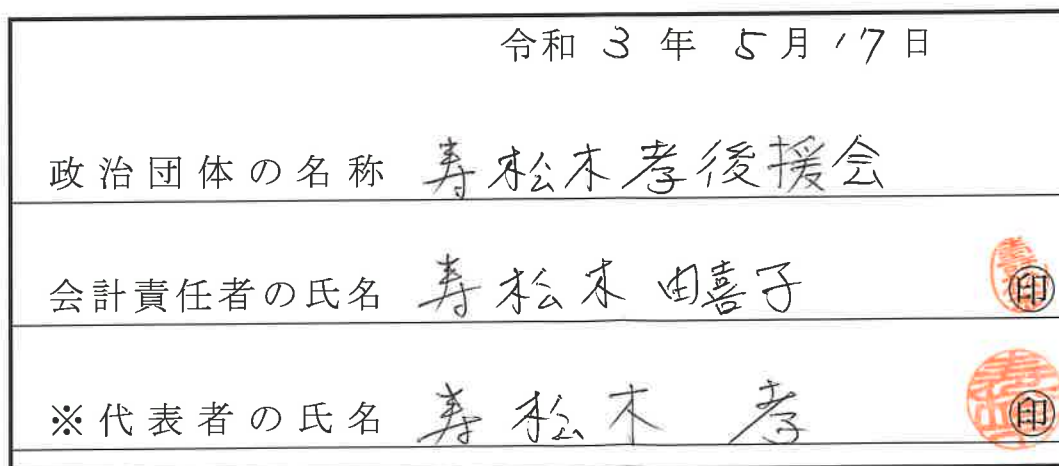 令和 3 年 5 月 17 日
政治団体の名称 寿松木孝後援会
会計責任者の氏名 寿松木由喜子 印
※代表者の氏名 寿松木 孝 印